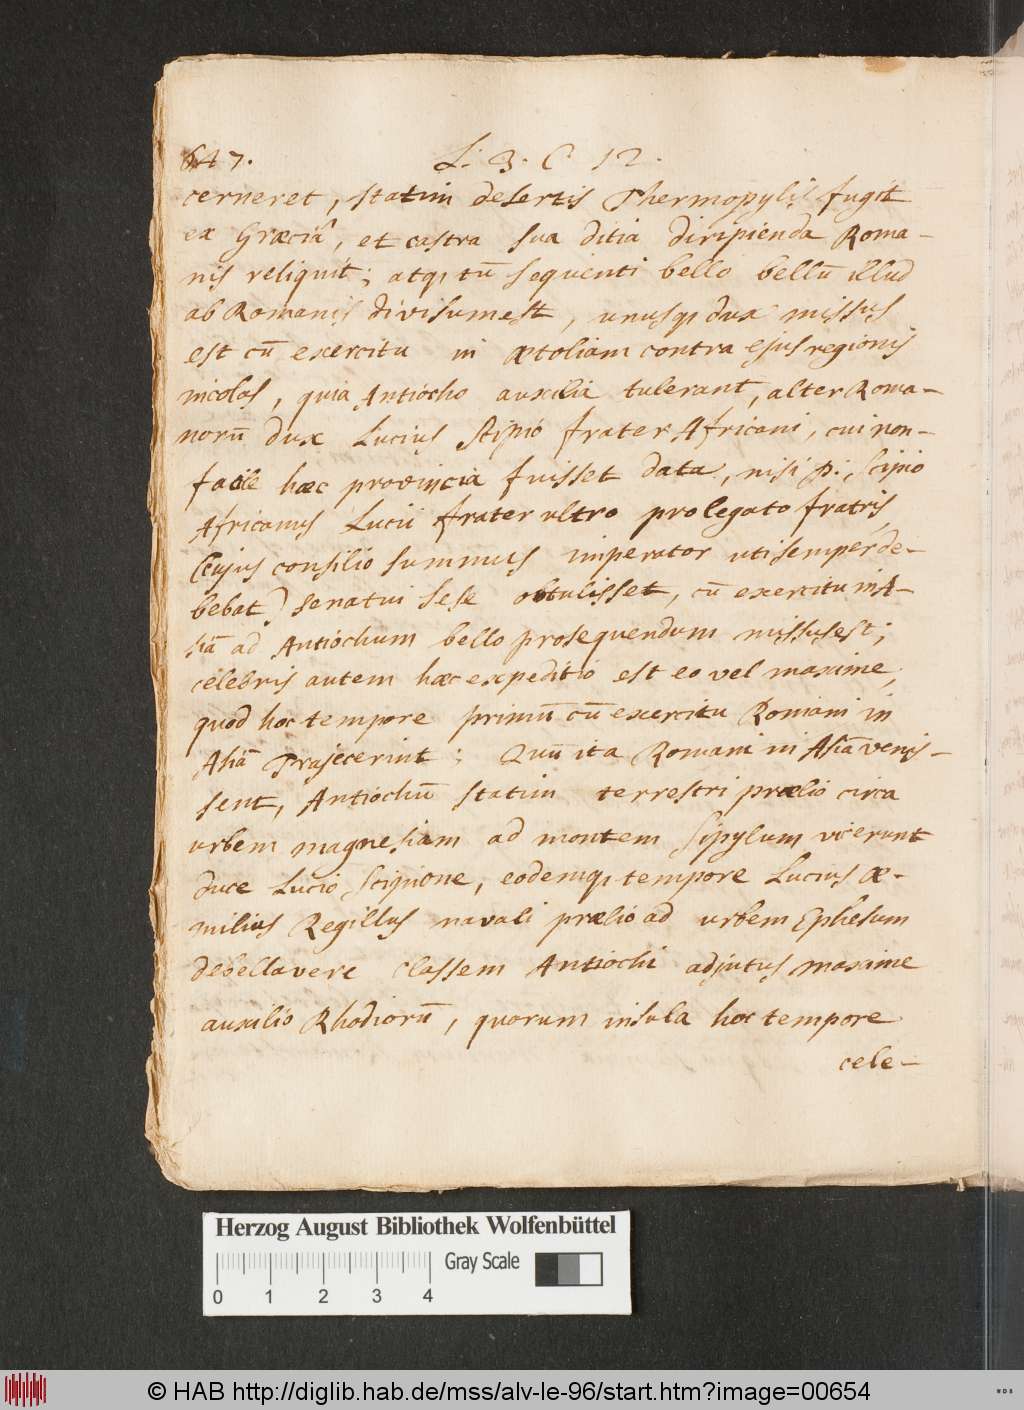 647.
L. 3. C 12.
cerneret, statim desertis Thermopylis fugit
ex Græciâ, et castra sua ditia diripienda Roma-
nis reliquit; atqꝫ tū sequenti bello bellū illud
ab Romanis divisum est, unusqꝫ dux missus
est cū exercitu in Ætoliam contra ejus regionis
incolas, quia Antiocho auxilia tulerant, alter Roma-
norū dux Lucius Scipio frater Africani, cui non-
facile hæc provincia fuisset data, nisi P. Scipio
Africanus Lucii frater ultro pro legato fratris,
(Cujus consilio summus imperator uti semper de-
bebat) senatui sese obtulisset, cū exercitu in A-
siā ad Antiochum bello prosequendum missus est;
celebris autem hæc expeditio est eo vel maxime,
quod hoc tempore primū cū exercitu Romani in
Asiā Trajecerint; Quū ita Romani in Asiā venis-
sent, Antiochū statim terrestri prælio circa
urbem magnesiam ad montem Sipylum vicerunt
duce Lucio Scipione, eodemqꝫ tempore Lucius Æ-
milius Regillus navali prælio ad urbem Ephesum
debellavere classem Antiochi adjutus maxime
auxilio Rhodiorū, quorum insula hoc tempore
cele-
Herzog August Bibliothek Wolfenbüttel
Gray Scale
0 1 2 3 4
© HAB http://diglib.hab.de/mss/alv-le-96/start.htm?image=00654